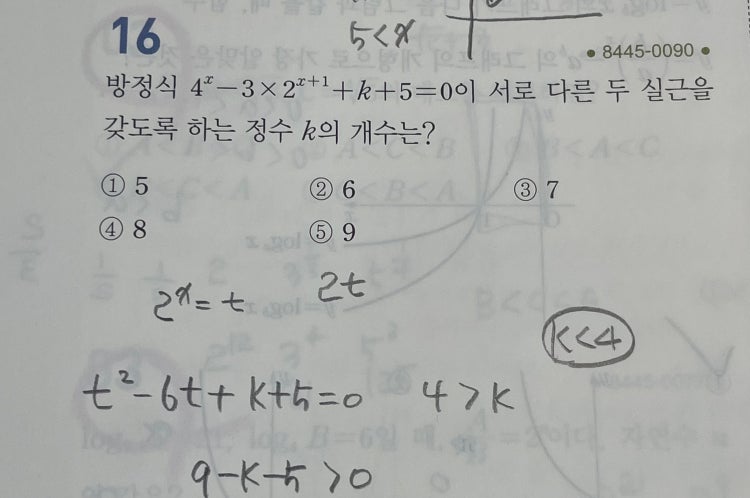 5<x
16
• 8445-0090 •
방정식 4^x-3×2^{x+1}+k+5=0이 서로 다른 두 실근을
갖도록 하는 정수 k의 개수는?
① 5 ② 6 ③ 7
④ 8 ⑤ 9
2^x=t 2t
k<4
t^2-6t+k+5=0 4>k
9-k-5>0